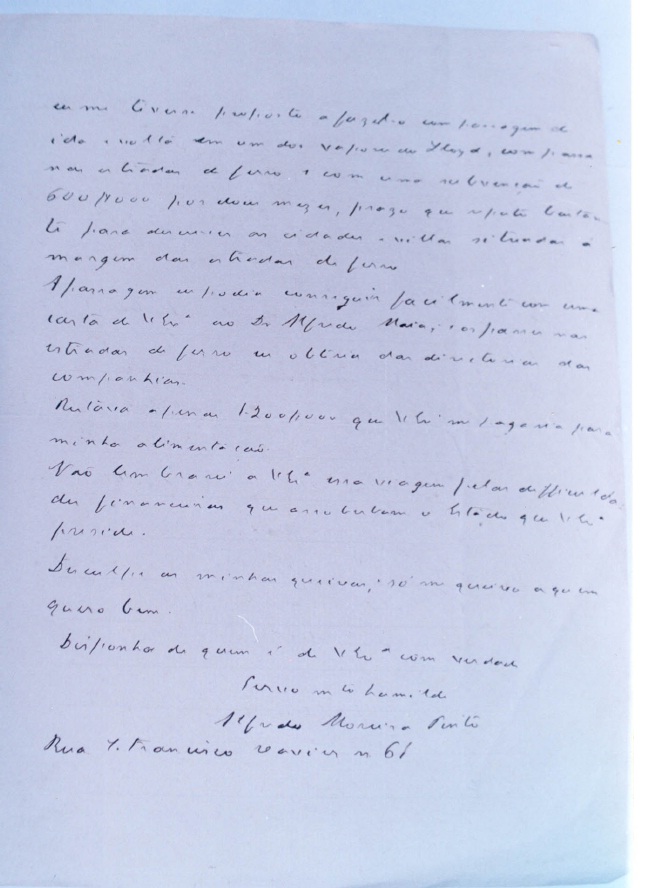 eu me tivesse proposto a fazel-o com passagem de
ida e volta em um dos vapores do Lloyd, com passe
nas estradas de ferro e com uma subvenção de
600$000 por dous mezes, prazo que reputo bastan
te para descrever as cidades e villas situadas á
margem das estradas de ferro
A passagem eu podia conseguir facilmente com uma
carta de V. Ex.ª ao Dr Alfredo Maia, e os passes nas
estradas de ferro eu obteria das directorias das
companhias.
Restava apenas 1.200$000 que V. Ex.ª me pagaria para
minha alimentação.
Não lembrarei a V. Ex.ª essa viagem pelas difficulda
des financeiras que assoberbam o Estado que V. Ex.ª
preside.
Desculpe as minhas queixas; só me queixo a quem
quero bem.
Disponha de quem é de V. Ex.ª com verdade
Servo mto humilde
Alfredo Moreira Pinto
Rua S. Francisco Xavier n 61